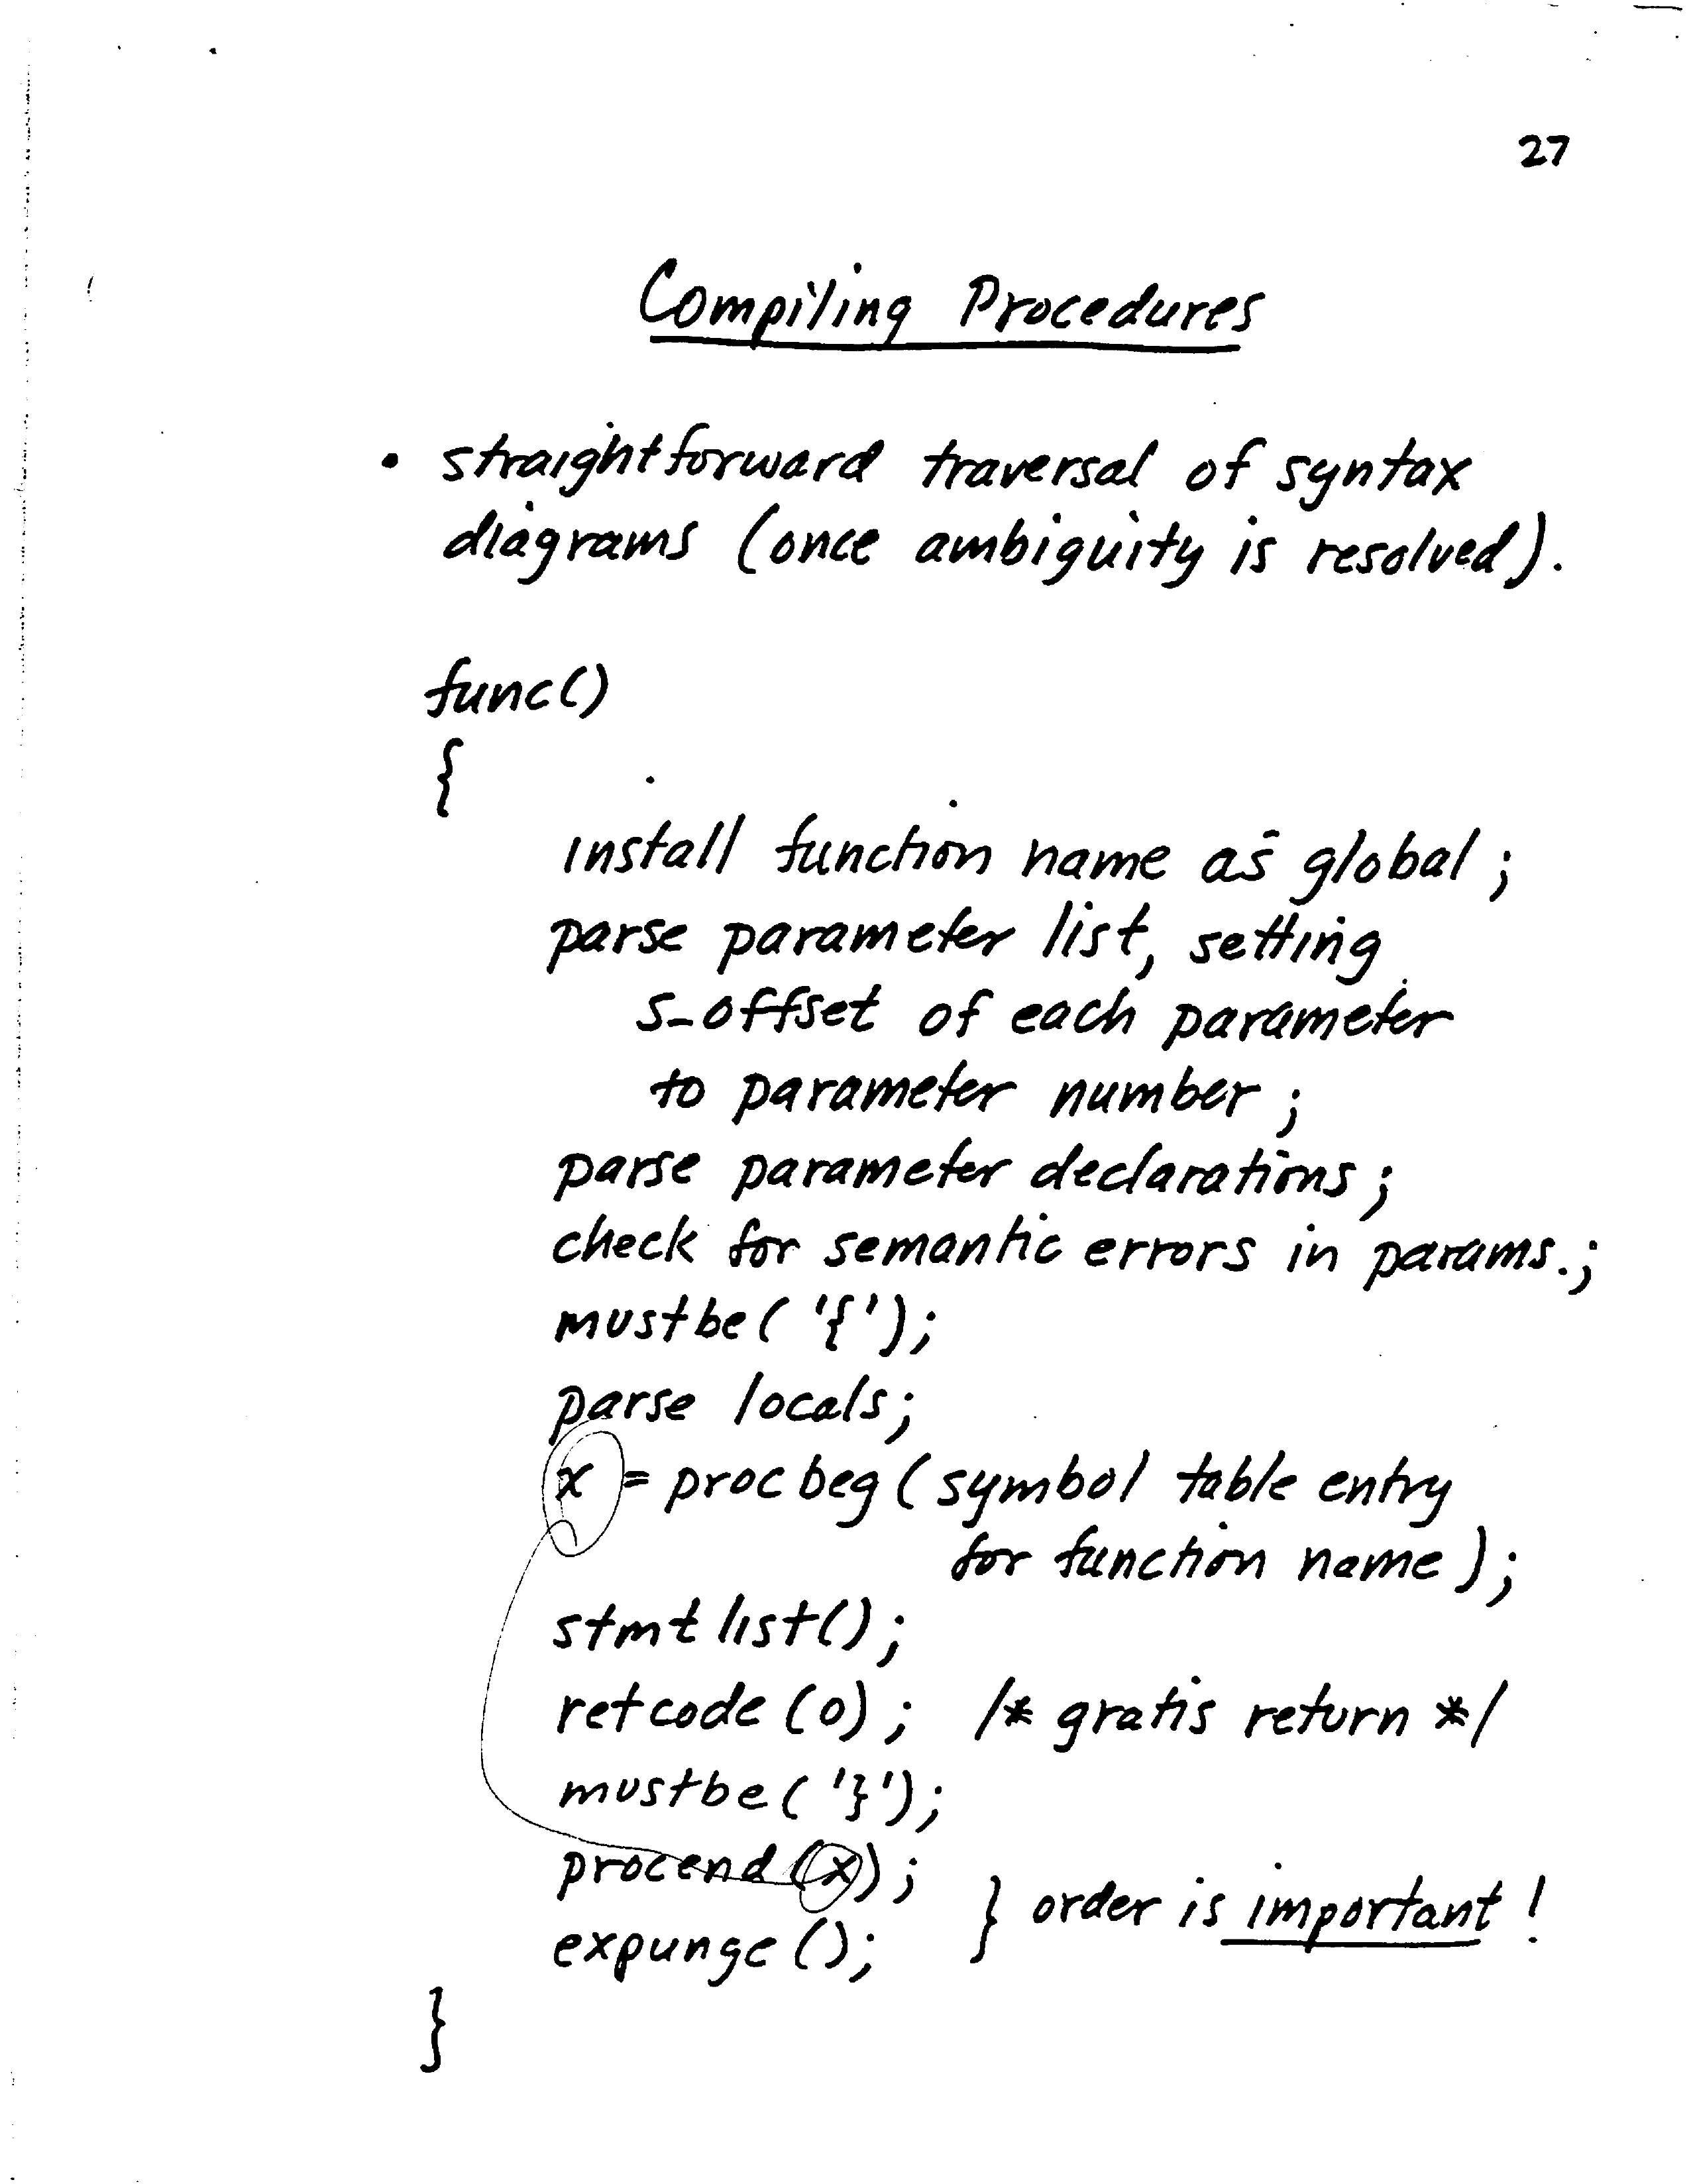 27
Compiling Procedures
• straightforward traversal of syntax
diagrams (once ambiguity is resolved).
func()
{
install function name as global;
parse parameter list, setting
s_offset of each parameter
to parameter number;
parse parameter declarations;
check for semantic errors in params.;
mustbe('{');
parse locals;
x = procbeg(symbol table entry
for function name);
stmtlist();
retcode(0); /* gratis return */
mustbe('}');
procend(x);
expunge(); } order is important!
}